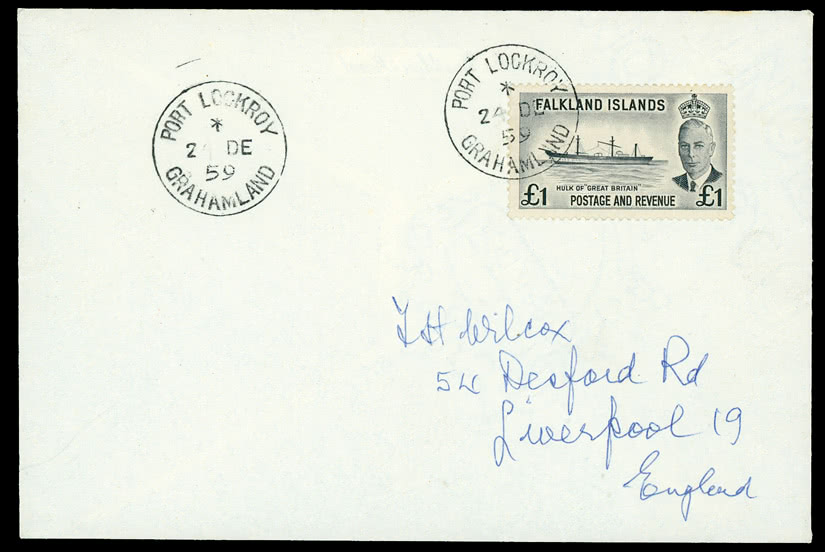 PORT LOCKROY
*
2 DE
59
GRAHAMLAND
PORT LOCKROY
*
24 DE
59
GRAHAMLAND
FALKLAND ISLANDS
HULK OF "GREAT BRITAIN"
£1 POSTAGE AND REVENUE £1
Wilcox
54 Desford Rd
Liverpool 19
England